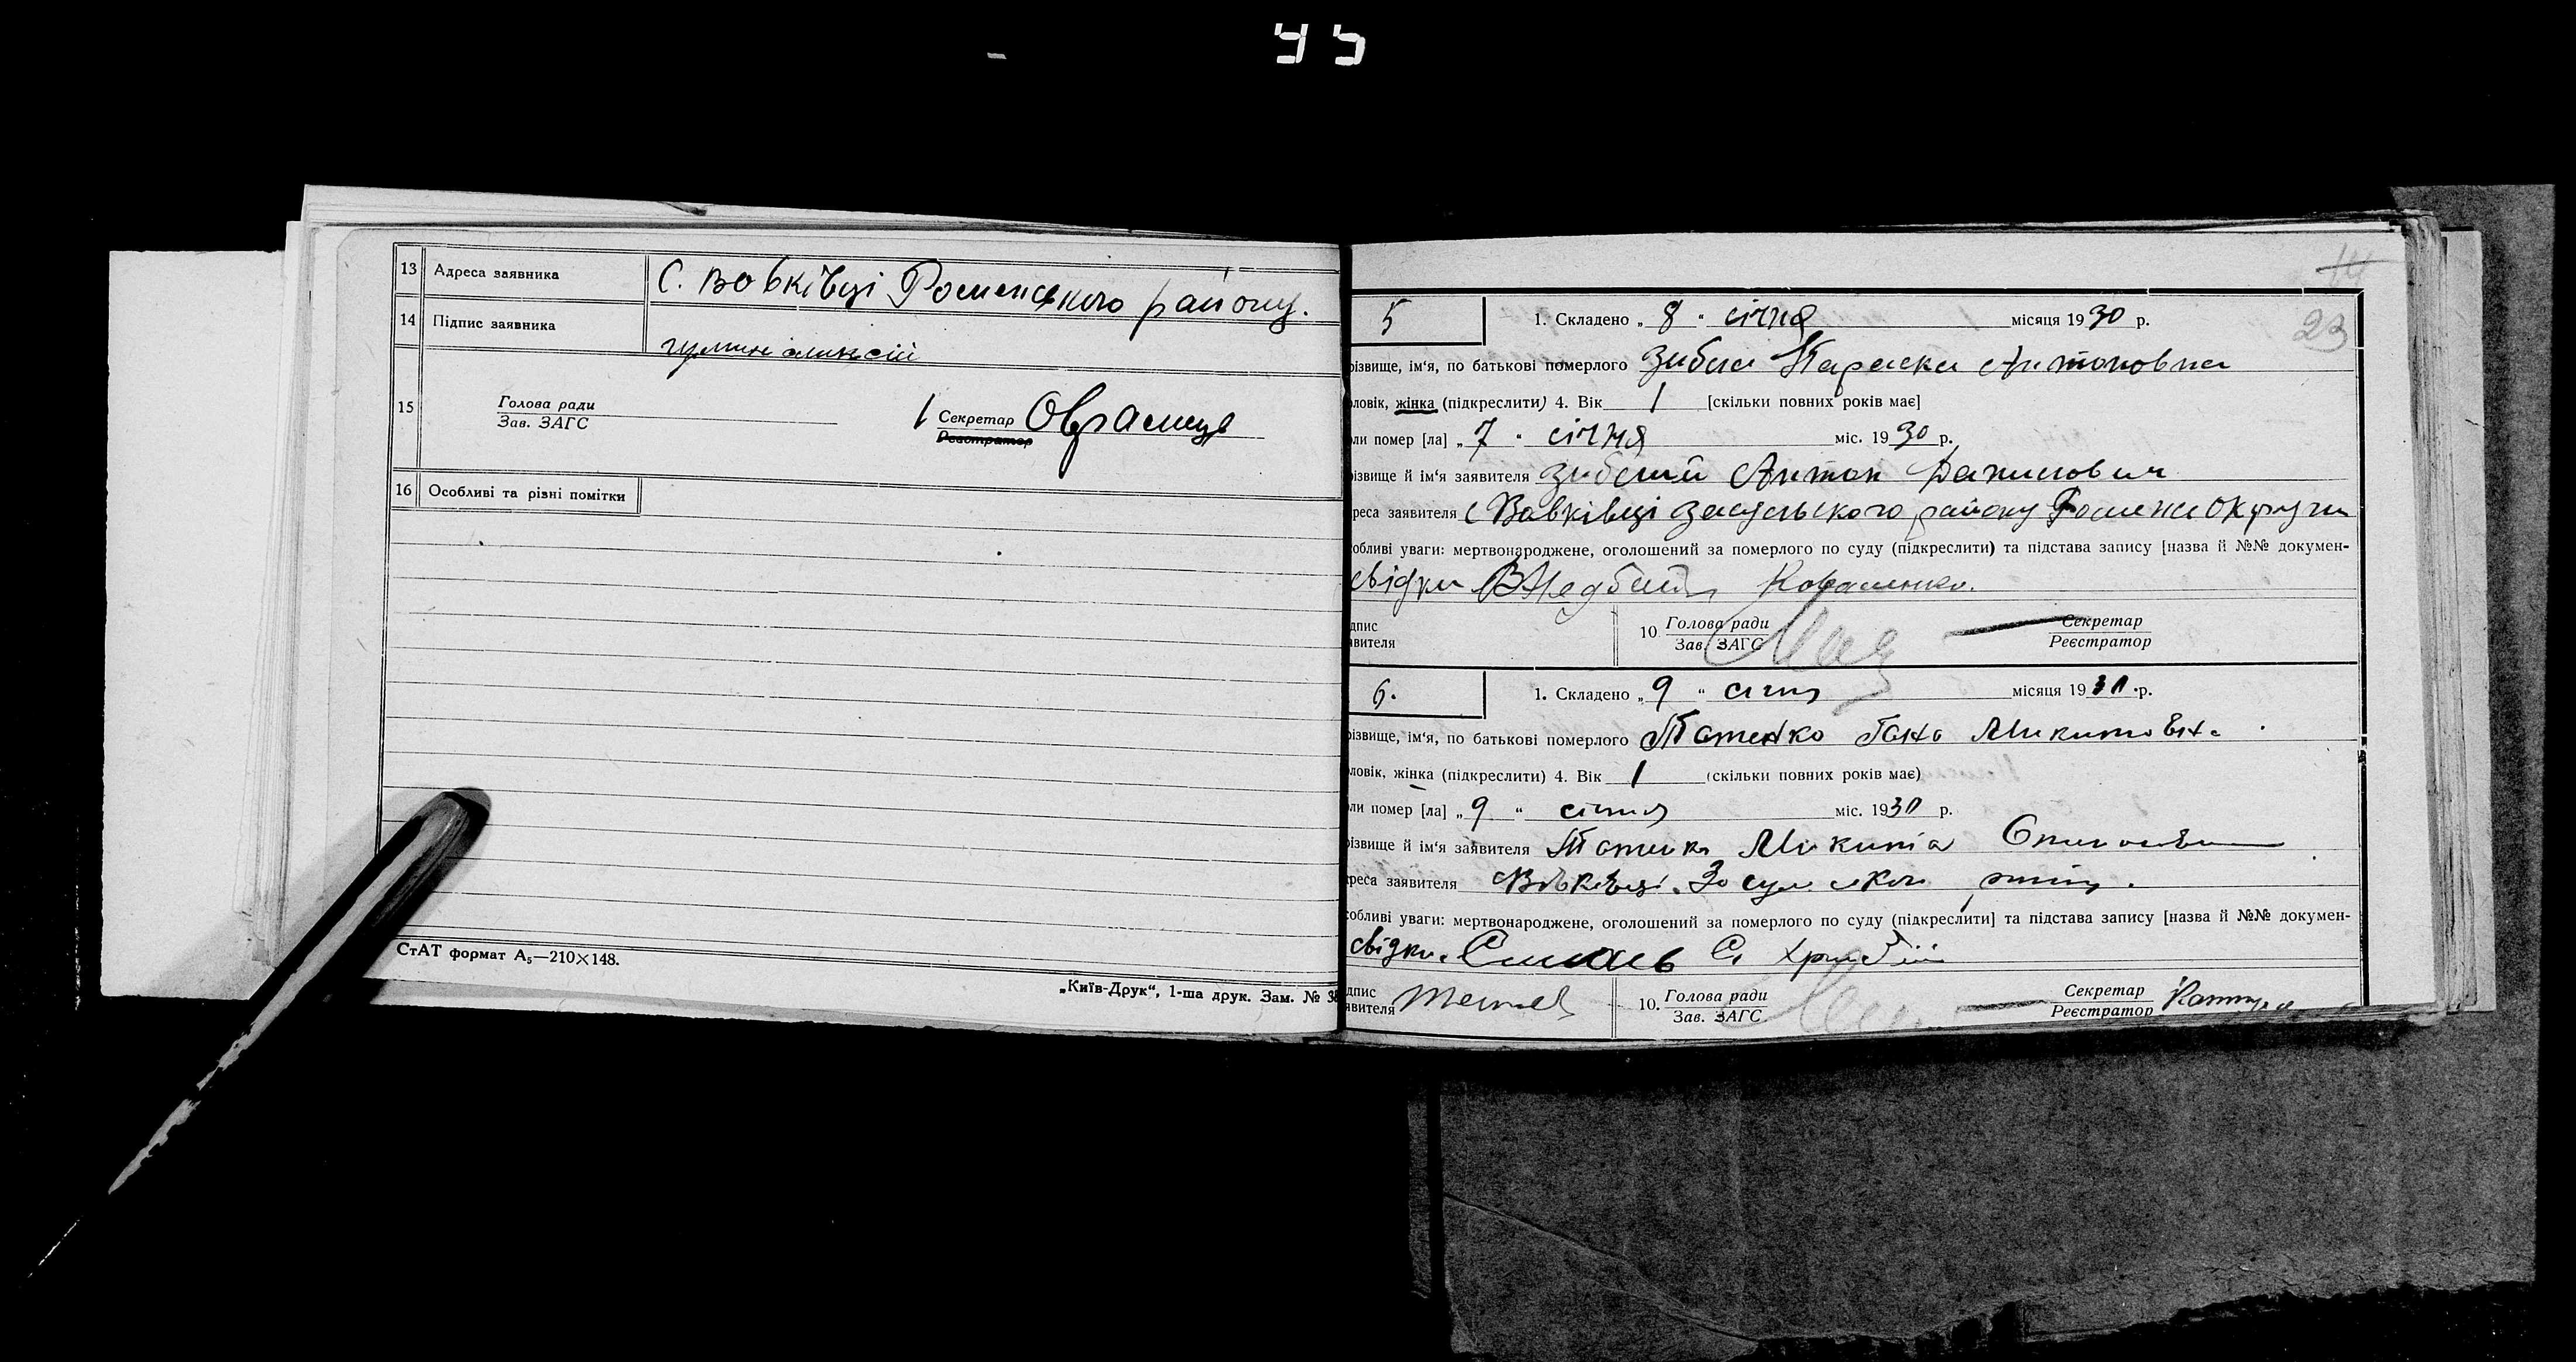 13 Адреса заявника С. Вовківці Роменського району.
14 Підпис заявника
15 Голова ради
Зав. ЗАГС
Секретар
Реєстратор
16 Особливі та різні помітки
СтАТ формат А5—210×148.
„Київ-Друк“, 1-ша друк. Зам. № 38
14
23
5 1. Складено „ 8 “ січня місяця 1930 р.
різвище, ім‘я, по батькові померлого Параска Антоновна
ловік, жінка (підкреслити) 4. Вік 1 [скільки повних років має]
ли помер [ла] „ 7 “ січня міс. 1930 р.
різвище й ім‘я заявителя Антон Данилович
реса заявителя с Вовківці Засульського району Роменськ округи
обливі уваги: мертвонароджене, оголошений за померлого по суду (підкреслити) та підстава запису [назва й №№ докумен-
свідки Коваленко.
дпис
явителя
10 Голова ради
Зав. ЗАГС
Секретар
Реєстратор
6. 1. Складено „ 9 “ січня місяця 1930 р.
різвище, ім‘я, по батькові померлого Татенко Гана Микитовна
ловік, жінка (підкреслити) 4. Вік 1 (скільки повних років має)
ли помер [ла] „ 9 “ січня міс. 1930 р.
різвище й ім‘я заявителя Татенко Микита
реса заявителя Вовківці Засульського району.
собливі уваги: мертвонароджене, оголошений за померлого по суду (підкреслити] та підстава запису [назва й №№ докумен-
свідки.
дпис
явителя
10. Голова ради
Зав. ЗАГС
Секретар
Реєстратор